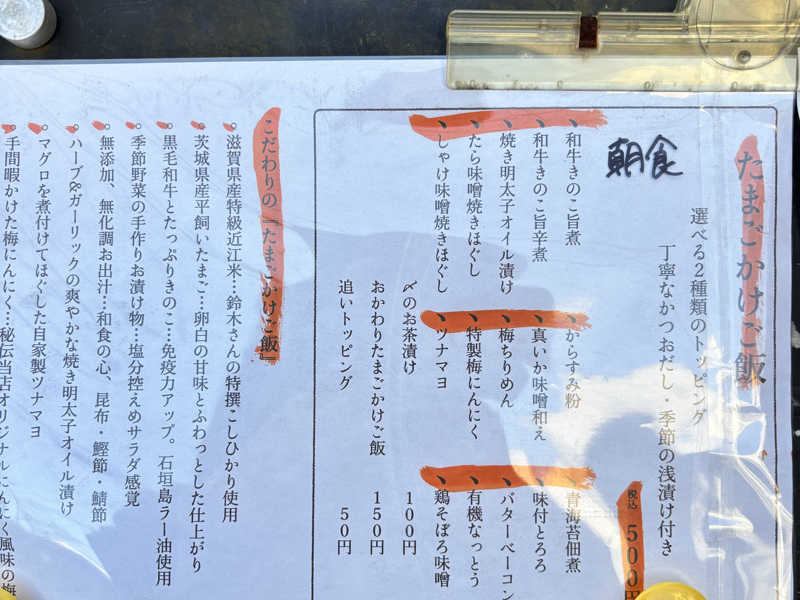 たまごかけご飯
朝食
選べる2種類のトッピング
丁寧なかつおだし・季節の浅漬け付き
税込 500円
、和牛きのこ旨煮
、和牛きのこ旨辛煮
、焼き明太子オイル漬け
、たら味噌焼きほぐし
、しゃけ味噌焼きほぐし
、からすみ粉
、真いか味噌和え
、梅ちりめん
、特製梅にんにく
、ツナマヨ
、青海苔佃煮
、味付とろろ
、バターベーコン
、有機なっとう
、鶏そぼろ味噌
〆のお茶漬け 100円
おかわりたまごかけご飯 150円
追いトッピング 50円
こだわりの『たまごかけご飯』
滋賀県産特級近江米…鈴木さんの特撰こしひかり使用
茨城県産平飼いたまご…卵白の甘味とふわっとした仕上がり
黒毛和牛とたっぷりきのこ…免疫力アップ。石垣島ラー油使用
季節野菜の手作りお漬け物…塩分控えめサラダ感覚
無添加、無化調お出汁…和食の心、昆布・鰹節・鯖節
ハーブ&ガーリックの爽やかな焼き明太子オイル漬け
マグロを煮付けてほぐした自家製ツナマヨ
手間暇かけた梅にんにく…秘伝当店オリジナルにんにく風味の梅